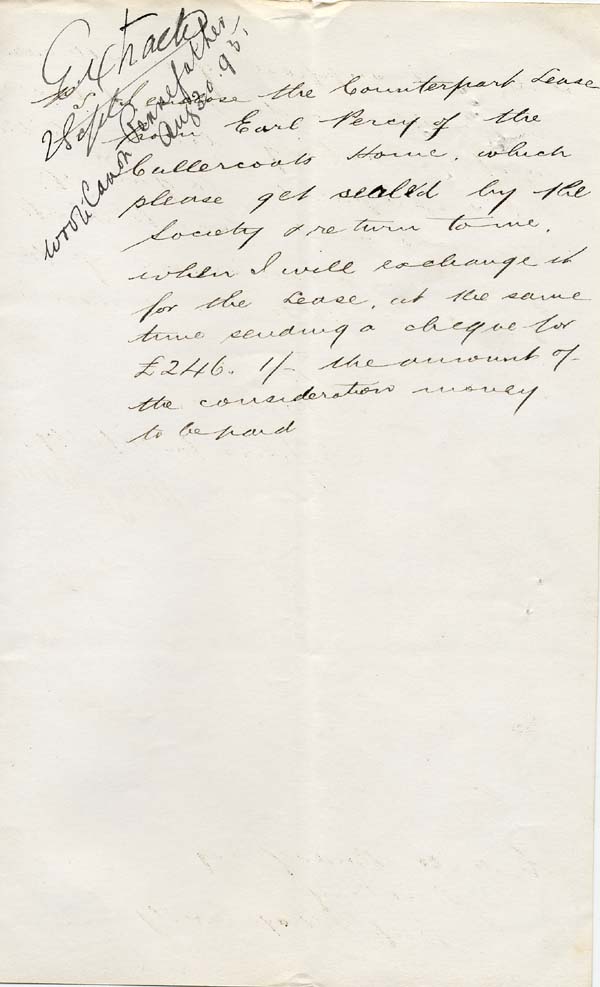 Extract
2 Sept
wrote Canon Pennefather
Aug 30. 95.
I enclose the Counterpart Lease
from Earl Percy of the
Cullercoats Home, which
please get sealed by the
Society & return to me,
when I will exchange it
for the Lease, at the same
time sending a cheque for
£246. 1/- the amount of
the consideration money
to be paid